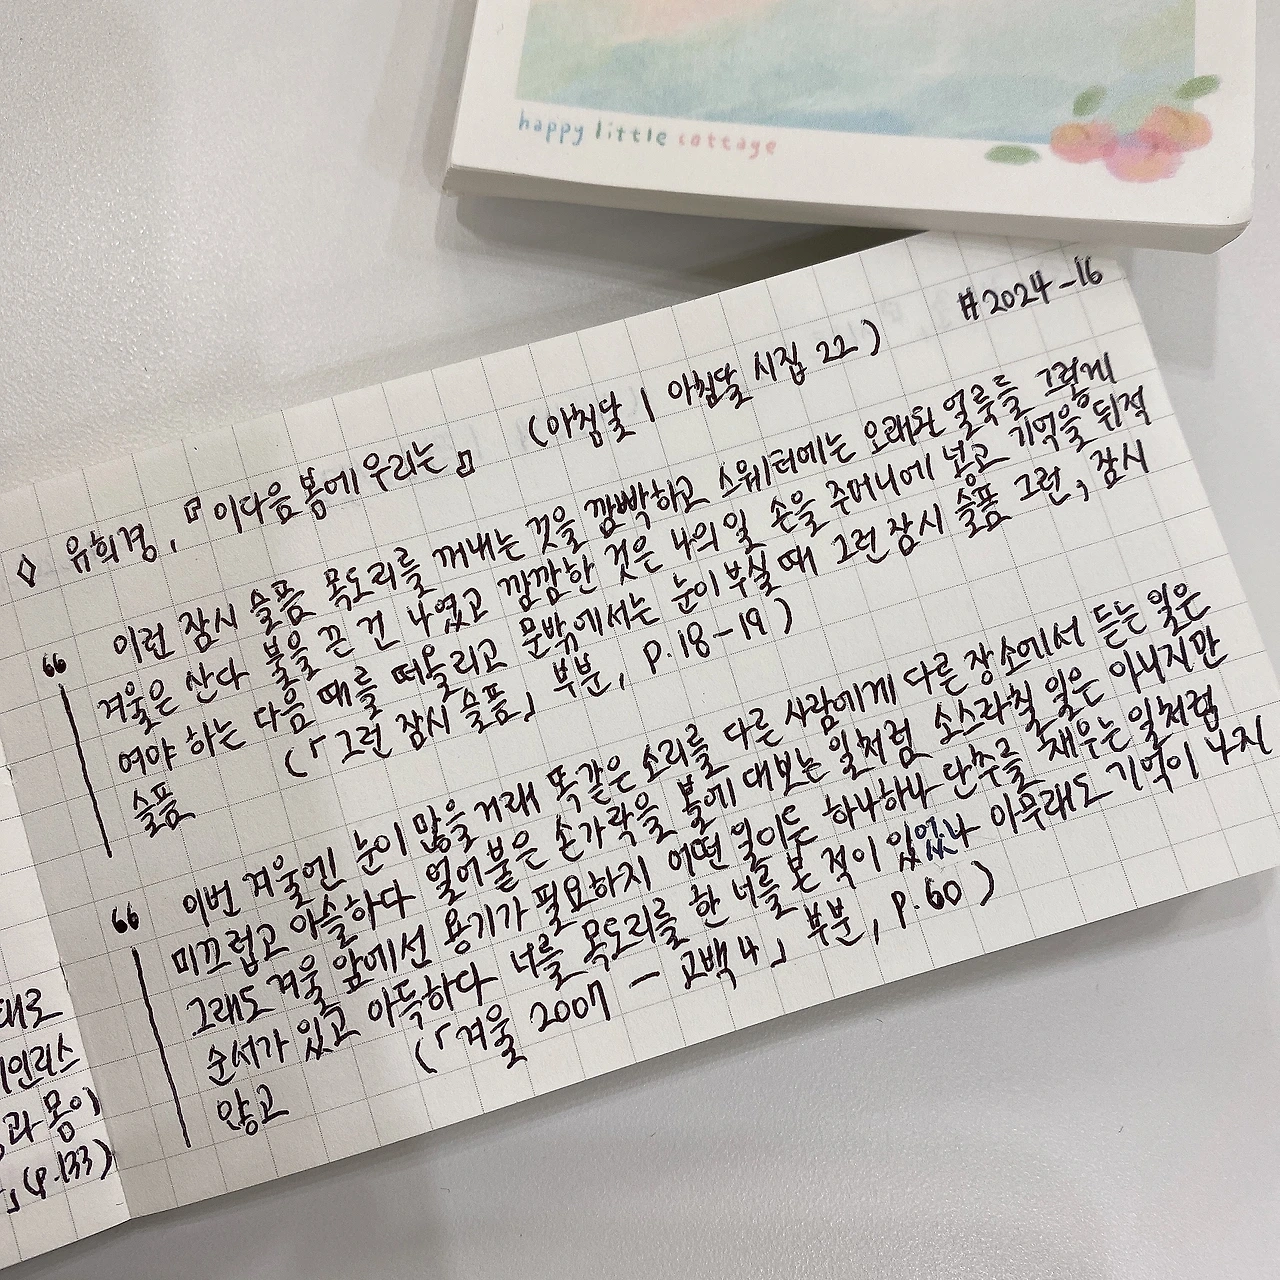 happy little cottage
#2024-16
◇ 유희경, 『이다음 봄에 우리는』 (아침달 | 아침달 시집 22)
“ 이런 잠시 슬픔 목도리를 꺼내는 것을 깜빡하고 스웨터에는 오래된 얼룩들 그렇게
겨울은 산다 불을 끈 건 나였고 깜깜한 것은 나의 일 손을 주머니에 넣고 기억을 뒤적
여야 하는 다음 때를 떠올리고 문밖에서는 눈이 부실 때 그런 잠시 슬픔 그런, 잠시
슬픔 (「그런 잠시 슬픔」 부분, p.18-19)
“ 이번 겨울엔 눈이 많을 거래 똑같은 소리를 다른 사람에게 다른 장소에서 듣는 일은
미끄럽고 아슬하다 얼어붙은 손가락을 볼에 대보는 일처럼 소스라칠 일은 아니지만
그래도 겨울 앞에선 용기가 필요하지 어떤 일이든 하나하나 단추를 채우는 일처럼
순서가 있고 아득하다 너를 목도리를 한 너를 본 적이 있었나 아무래도 기억이 나지
않고 (「겨울 2007 - 고백 4」 부분, p.60)
대로
인리스
과 몸이
」, (p.133)